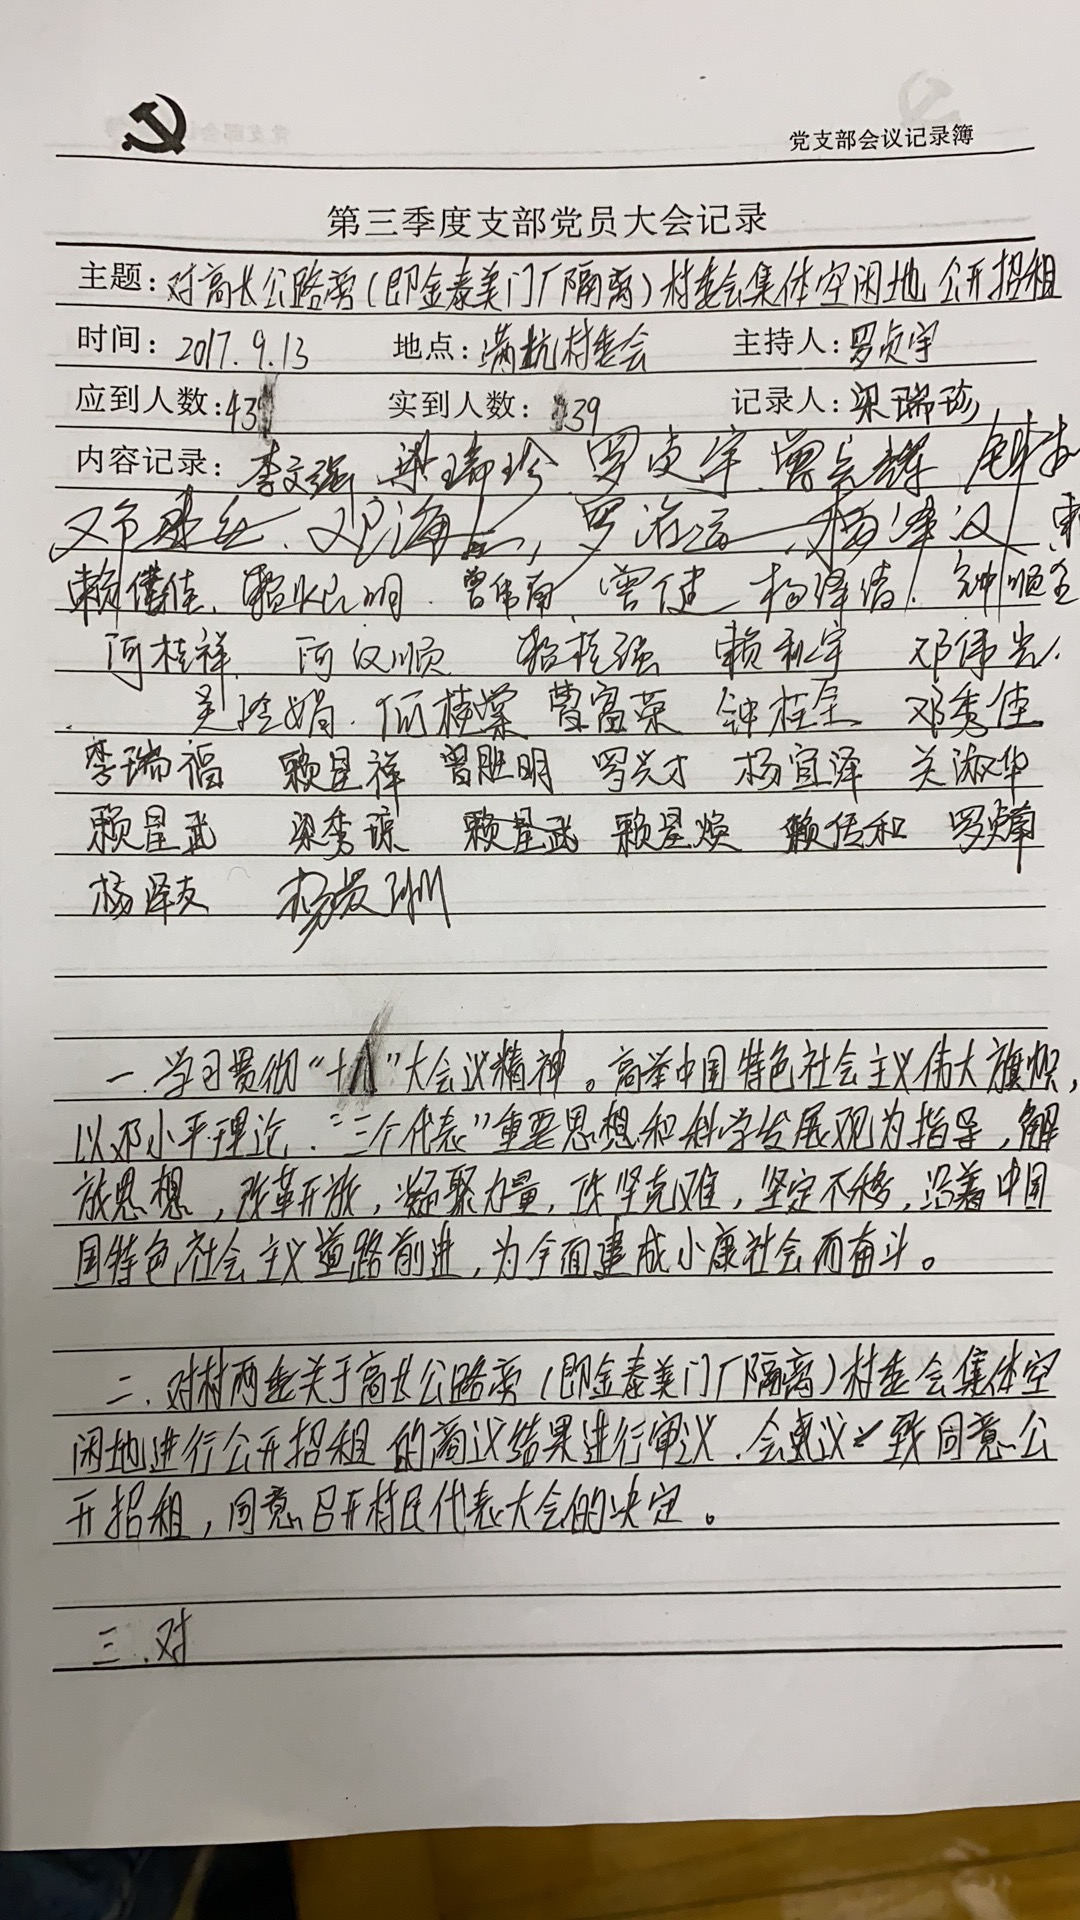 党支部会议记录簿
第三季度支部党员大会记录
主题:对高长公路旁(即金泰美门厂隔离)村委会集体空闲地公开招租
时间:2017.9.13 地点:满坑村委会 主持人:罗贞宇
应到人数:43 实到人数:39 记录人:梁瑞珍
内容记录:李文强 梁瑞珍 罗贞宇 曾宗辉
罗治运 杨泽汉
曾伟南 曾健 杨泽倩 钟顺全
阿桂祥 阿汉顺 赖桂强 赖利宇 邓伟光
何桂棠 曹富荣 钟桂全 邓秀佳
李瑞福 赖星祥 曾胜明 罗兴才 杨宜泽 关淑华
赖星武 梁李琼 赖星武 赖星焕 赖传和
杨泽友
一.学习贯彻“十八”大会议精神。高举中国特色社会主义伟大旗帜,
以邓小平理论.“三个代表”重要思想和科学发展观为指导,解
放思想,改革开放,凝聚力量,攻坚克难,坚定不移,沿着中国
国特色社会主义道路前进,为全面建成小康社会而奋斗。
二.对村两委关于高长公路旁(即金泰美门厂隔离)村委会集体空
闲地进行公开招租的商议结果进行审议.会议一致同意公
开招租,同意召开村民代表大会的决定。
三.对